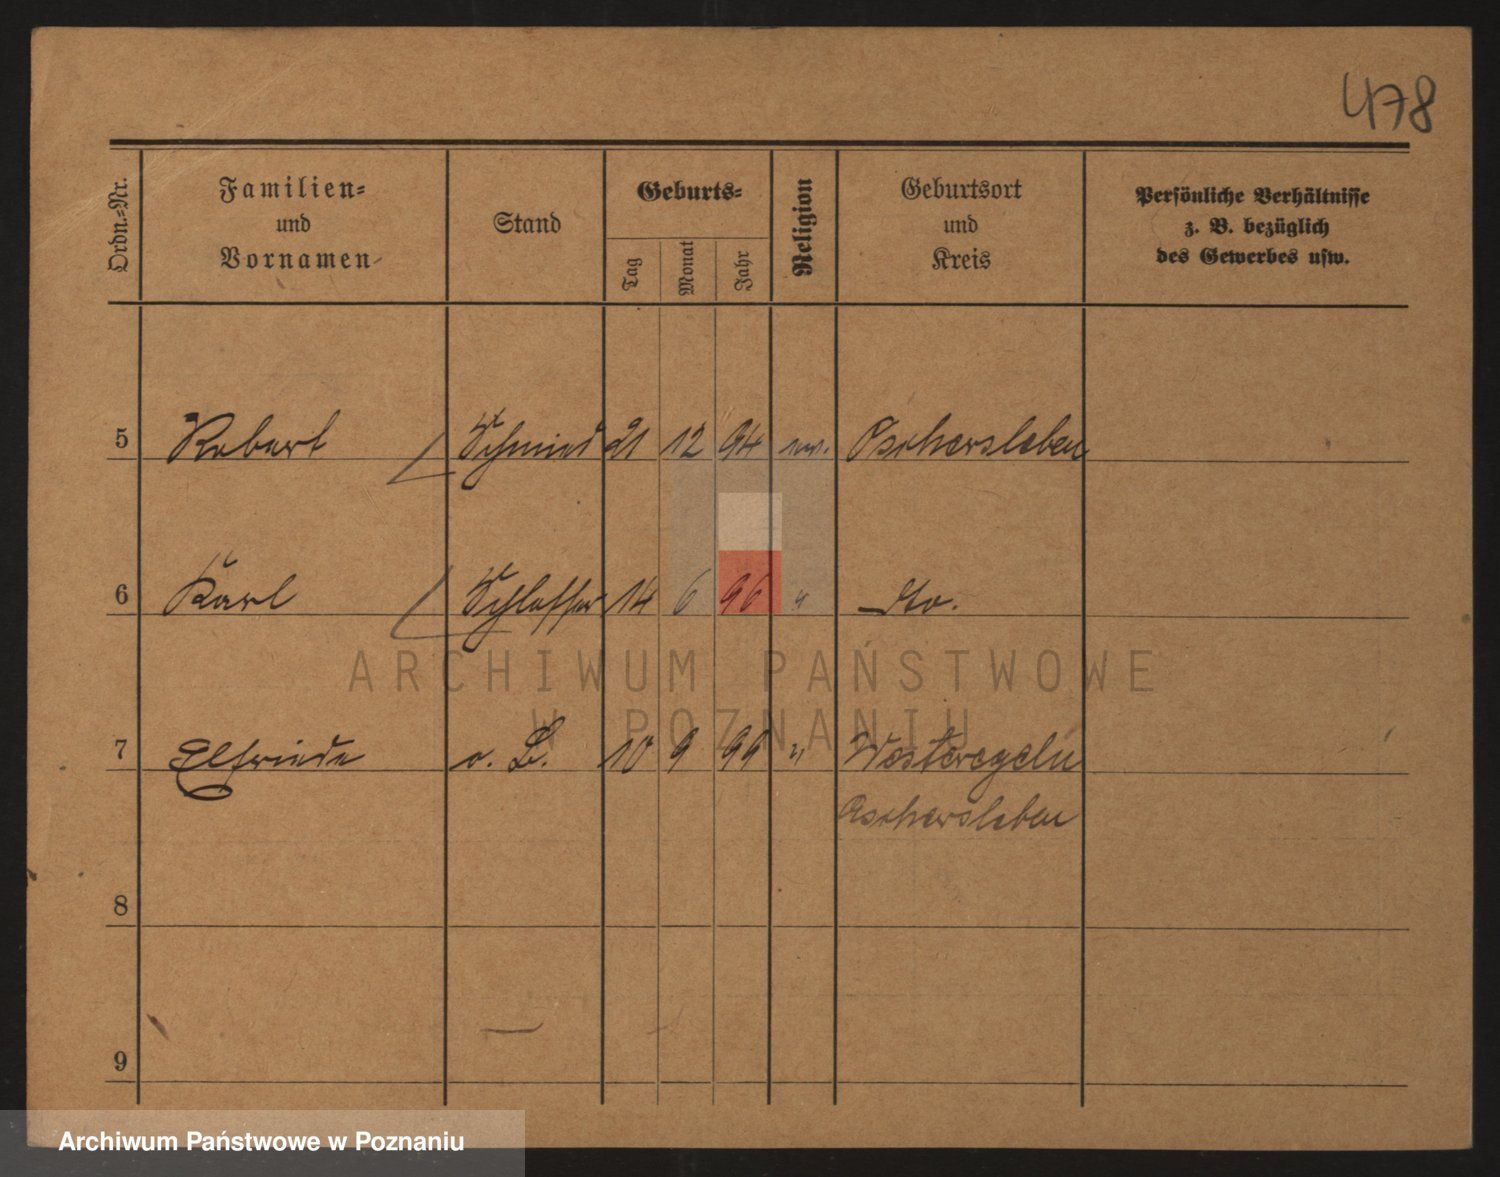 478
Ordn.=Nr.
Familien=
und
Vornamen
Stand
Geburts=
Tag
Monat
Jahr
Religion
Geburtsort
und
Kreis
Persönliche Verhältnisse
z. B. bezüglich
des Gewerbes usw.
5 Robert Schmied 21 12 94 ev. Oschersleben
6 Karl Schlosser 14 6 96 " dto.
ARCHIWUM PAŃSTWOWE
W POZNANIU
7 Elfriede o. B. 10 9 99 " Westeregeln
Oschersleben
8
9
Archiwum Państwowe w Poznaniu